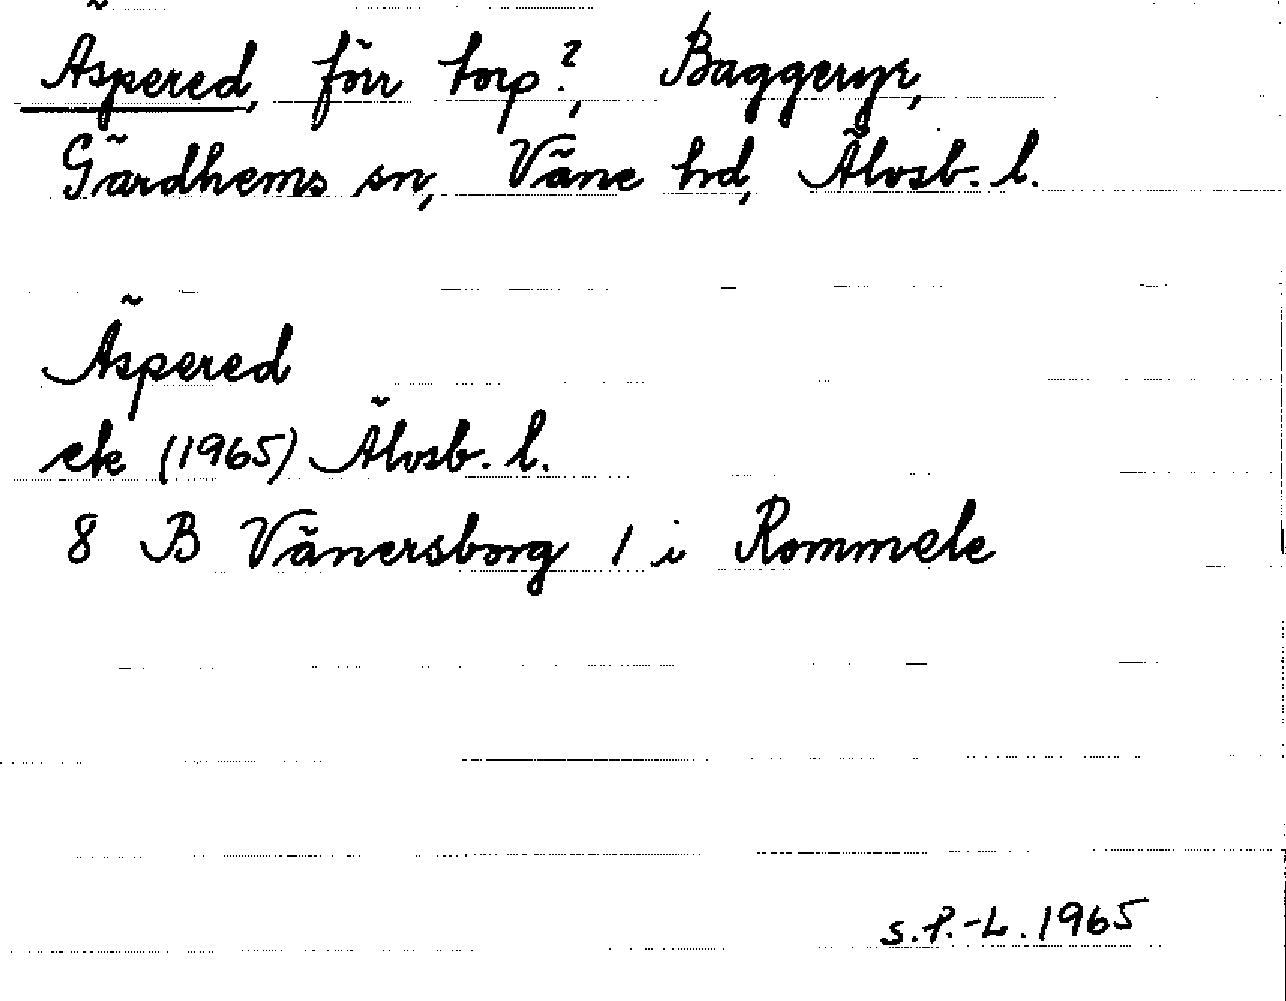 Äspered, förr torp?, Baggeryr,
Gärdhems sn, Väne hd, Älvsb. l.
Äspered
ek (1965) Älvsb. l.
8 B Vänersborg 1 i Rommele
S.P.-L. 1965